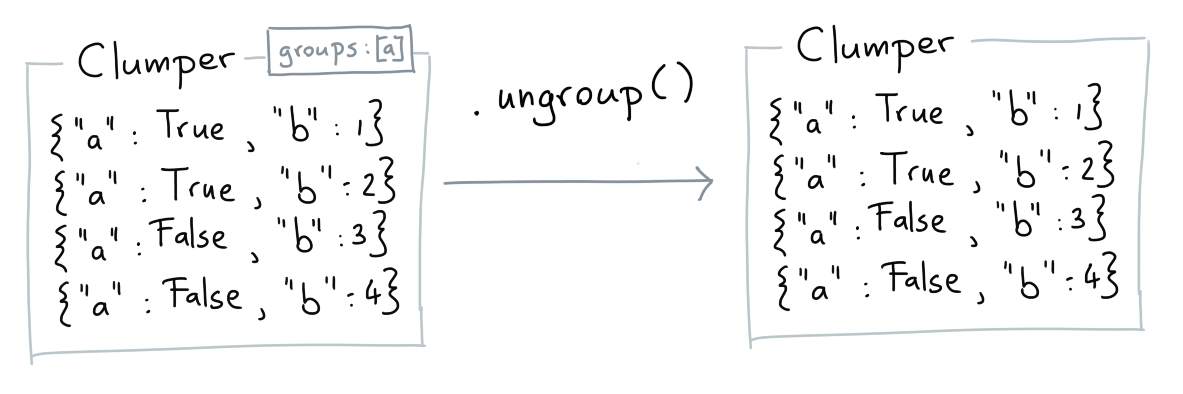 Clumper groups:[a]
{"a" : True , "b" : 1}
{"a" : True , "b" : 2}
{"a" : False , "b" : 3}
{"a" : False , "b" : 4}
.ungroup()
Clumper
{"a" : True , "b" : 1}
{"a" : True , "b" : 2}
{"a" : False , "b" : 3}
{"a" : False , "b" : 4}